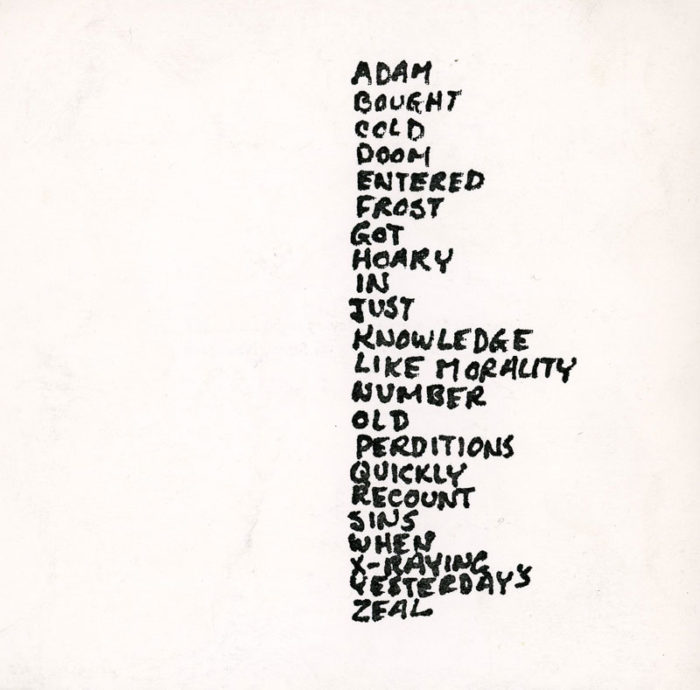 ADAM
BOUGHT
COLD
DOOM
ENTERED
FROST
GOT
HOARY
IN
JUST
KNOWLEDGE
LIKE MORALITY
NUMBER
OLD
PERDITIONS
QUICKLY
RECOUNT
SINS
WHEN
X-RAYING
YESTERDAY'S
ZEAL